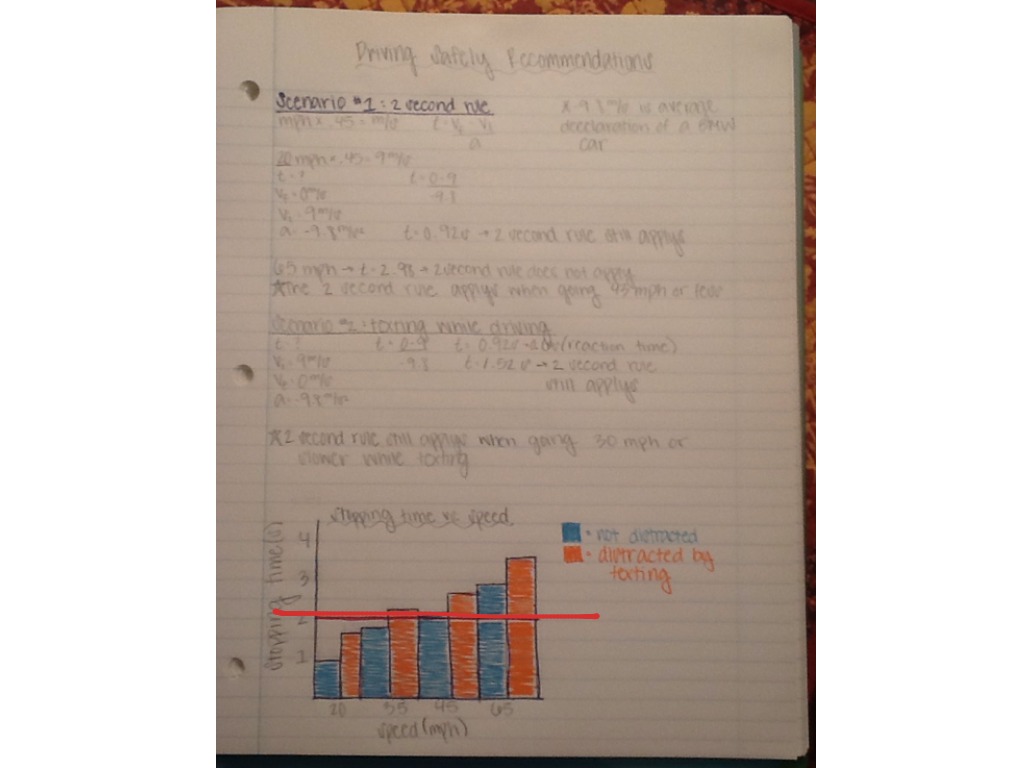 Driving Safely Recommendations
Scenario #1: 2 second rule
* -9.8 m/s² is average
mph x .45 = m/s t = Vf - Vi
decclaration of a BMW
a
car
20 mph x .45 = 9 m/s
t = ? t = 0-9
Vf = 0 m/s -9.8
Vi = 9 m/s
a = -9.8 m/s² t = 0.92s → 2 second rule still applys
65 mph → t = 2.98 → 2 second rule does not apply
*The 2 second rule applys when going 45 mph or less
Scenario #2: texting while driving
t = ? t = 0-9 t = 0.92s (reaction time)
Vi = 9 m/s -9.8 t = 1.52s → 2 second rule
Vf = 0 m/s still applys
a = -9.8 m/s²
*2 second rule still applys when going 30 mph or
slower while texting
Stopping time vs speed
4
3
2
1
Stopping time (s)
20 35 45 65
speed (mph)
= not distracted
= distracted by
texting